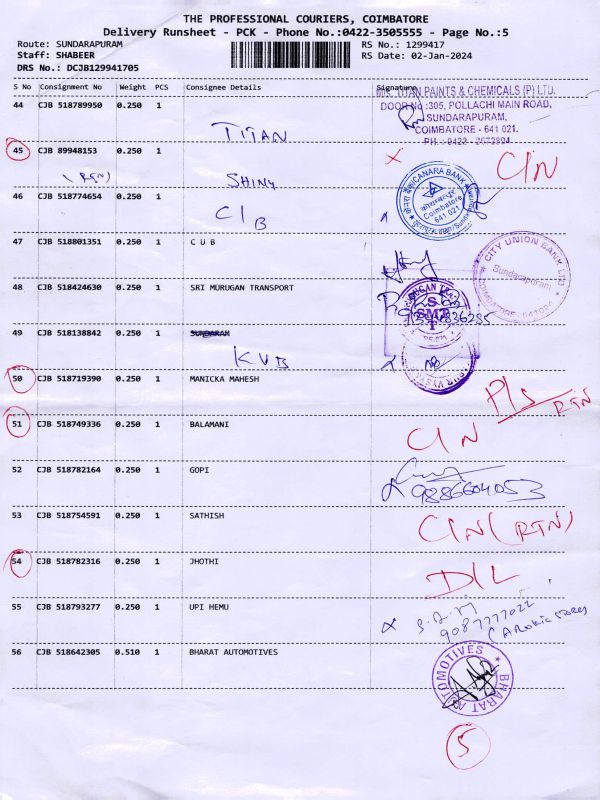 THE PROFESSIONAL COURIERS, COIMBATORE
Delivery Runsheet - PCK - Phone No.:0422-3505555 - Page No.:5
Route: SUNDARAPURAM RS No.: 1299417
Staff: SHABEER RS Date: 02-Jan-2024
DRS No.: DCJB129941705
S No Consignment No Weight PCS Consignee Details Signature
M/s. TITAN PAINTS & CHEMICALS (P) LTD.
44 CJB 518789950 0.250 1 TITAN
DOOR No :305, POLLACHI MAIN ROAD,
SUNDARAPURAM,
COIMBATORE - 641 021.
PH : 0422 - 2673804
45 CJB 89948153 0.250 1 SHINY C/N
(RTN)
CANARA BANK
केनरा बैंक
कोयम्बत्तूर
Coimbatore
641 021
46 CJB 518774654 0.250 1 CIB
47 CJB 518801351 0.250 1 C U B
CITY UNION BANK LTD
Sundarapuram
48 CJB 518424630 0.250 1 SRI MURUGAN TRANSPORT
S
SMT
T
49 CJB 518138842 0.250 1 SUNDARAM
KVB
50 CJB 518719390 0.250 1 MANICKA MAHESH P/s RTN
51 CJB 518749336 0.250 1 BALAMANI C/N
52 CJB 518782164 0.250 1 GOPI
9886604053
53 CJB 518754591 0.250 1 SATHISH C/N (RTN)
54 CJB 518782316 0.250 1 JHOTHI D/L
55 CJB 518793277 0.250 1 UPI HEMU
9087777022
56 CJB 518642305 0.510 1 BHARAT AUTOMOTIVES
BHARAT AUTOMOTIVES
5